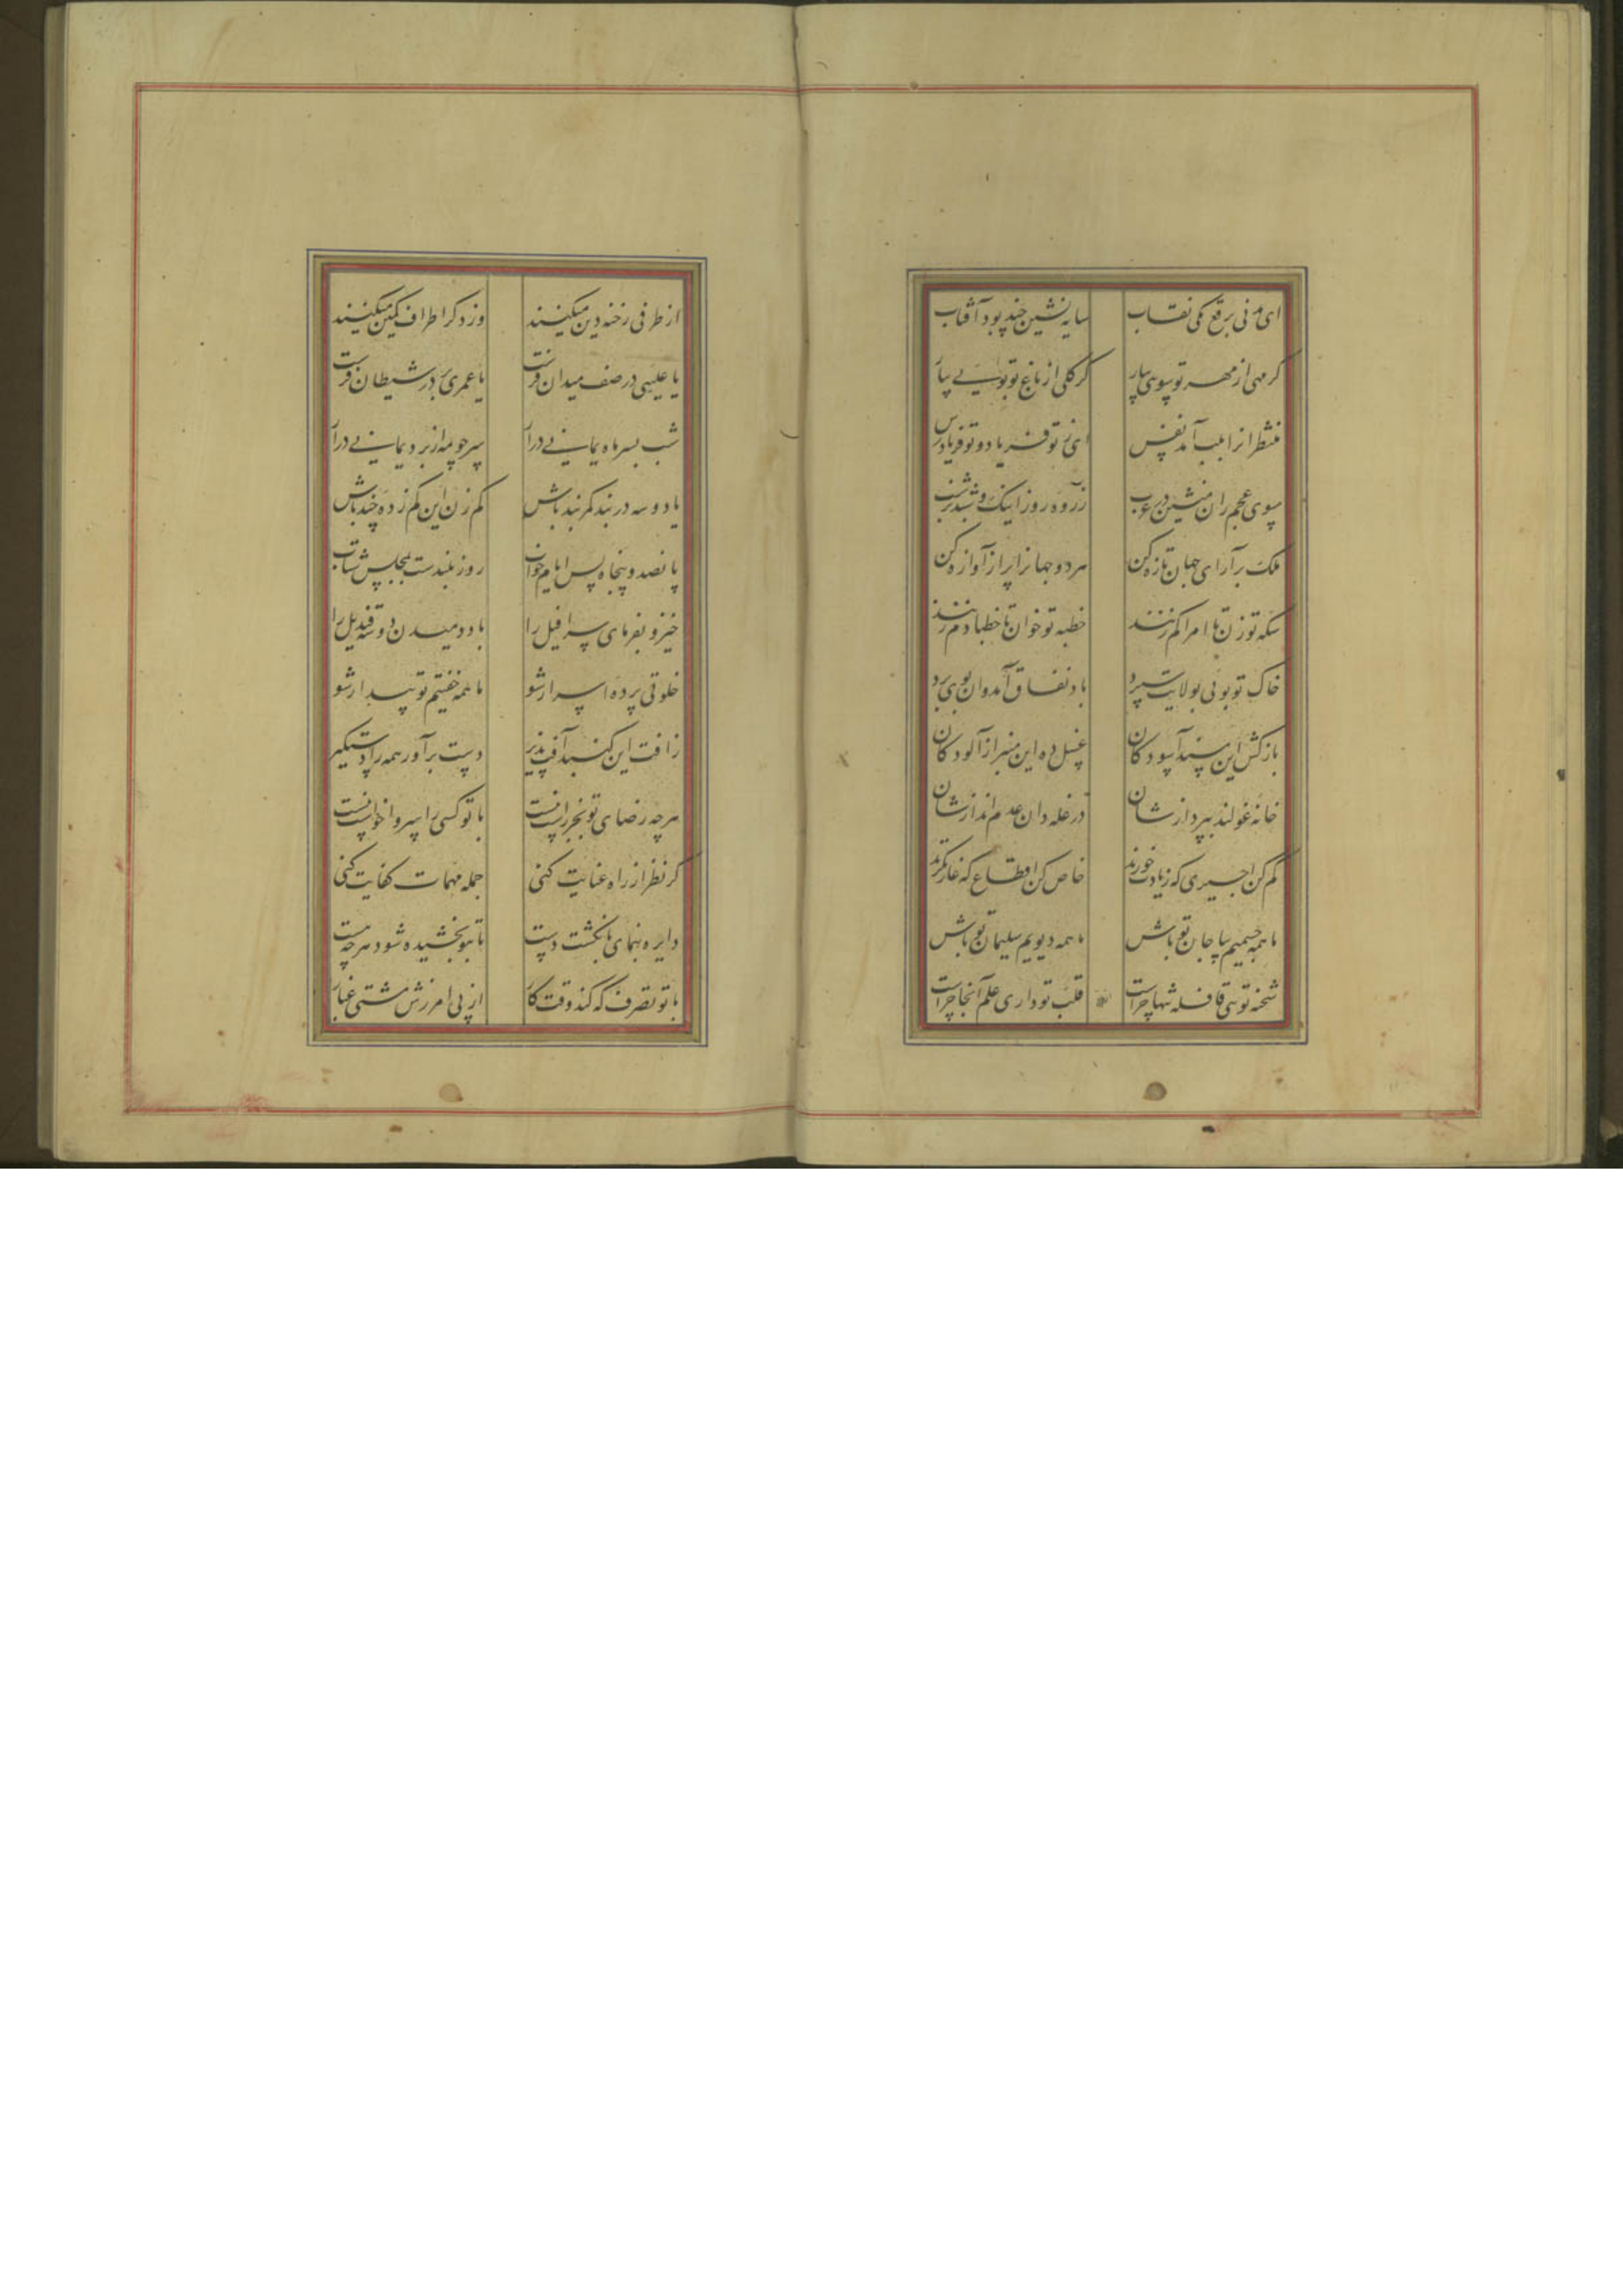 ای مدنی برقع مکی نقاب سایه نشین چند بود آفتاب
کر مهی از مهر تو مویی بیار کر کلی از باغ تو بویی بیار
منتظرانرا بلب آمد نفس ای ز تو فریاد و تو فریادرس
سوی عجم ران منشین در عرب زرده روز اینک و شبدیز شب
ملک برآرای و جهان تازه کن هر دو جهانرا پر از آوازه کن
سکه تو زن تا امرا کم زنند خطبه تو خوان تا خطبا دم زنند
خاک تو بویی بولایت سپرد باد نفاق آمد و آن بوی برد
بازکش این مسند از آسودکان غسل ده این منبر از آلودکان
خانه غولند بپردازشان در غله دان عدم اندازشان
کم کن اجری که زیادت خورند خاص کن اقطاع که غارتکرند
ما همه جسمیم بیا جان تو باش ما همه دیویم سلیمان تو باش
شحنه تویی قافله تنها چراست قلب تو داری علم آنجا چراست
از طرفی رخنه دین میکنند وز دکر اطراف کمین میکنند
یا علیی در صف میدان فرست یا عمری بر در شیطان فرست
شب بسر ماه یمانی درآر سر چو مه از برد یمانی درآر
با دو سه در بند کمربند باش کم زن این کم زده چند باش
پانصد و پنجاه بس ایام خواب روز بلندست بمجلس شتاب
خیز و بفرمای سرافیل را باد دمیدن دو سه قندیل را
خلوتی پرده اسرار شو ما همه خفتیم تو بیدار شو
زافت این کنبد آفت پذیر دست برآور همه را دستکیر
هرچه رضای تو بجز راست نیست با تو کسی را سر واخواست نیست
کر نظر از راه عنایت کنی جمله مهمات کفایت کنی
دایره بنمای بانکشت دست تا بتو بخشیده شود هرچه هست
با تو تصرف که کند وقت کار از پی آمرزش مشتی غبار